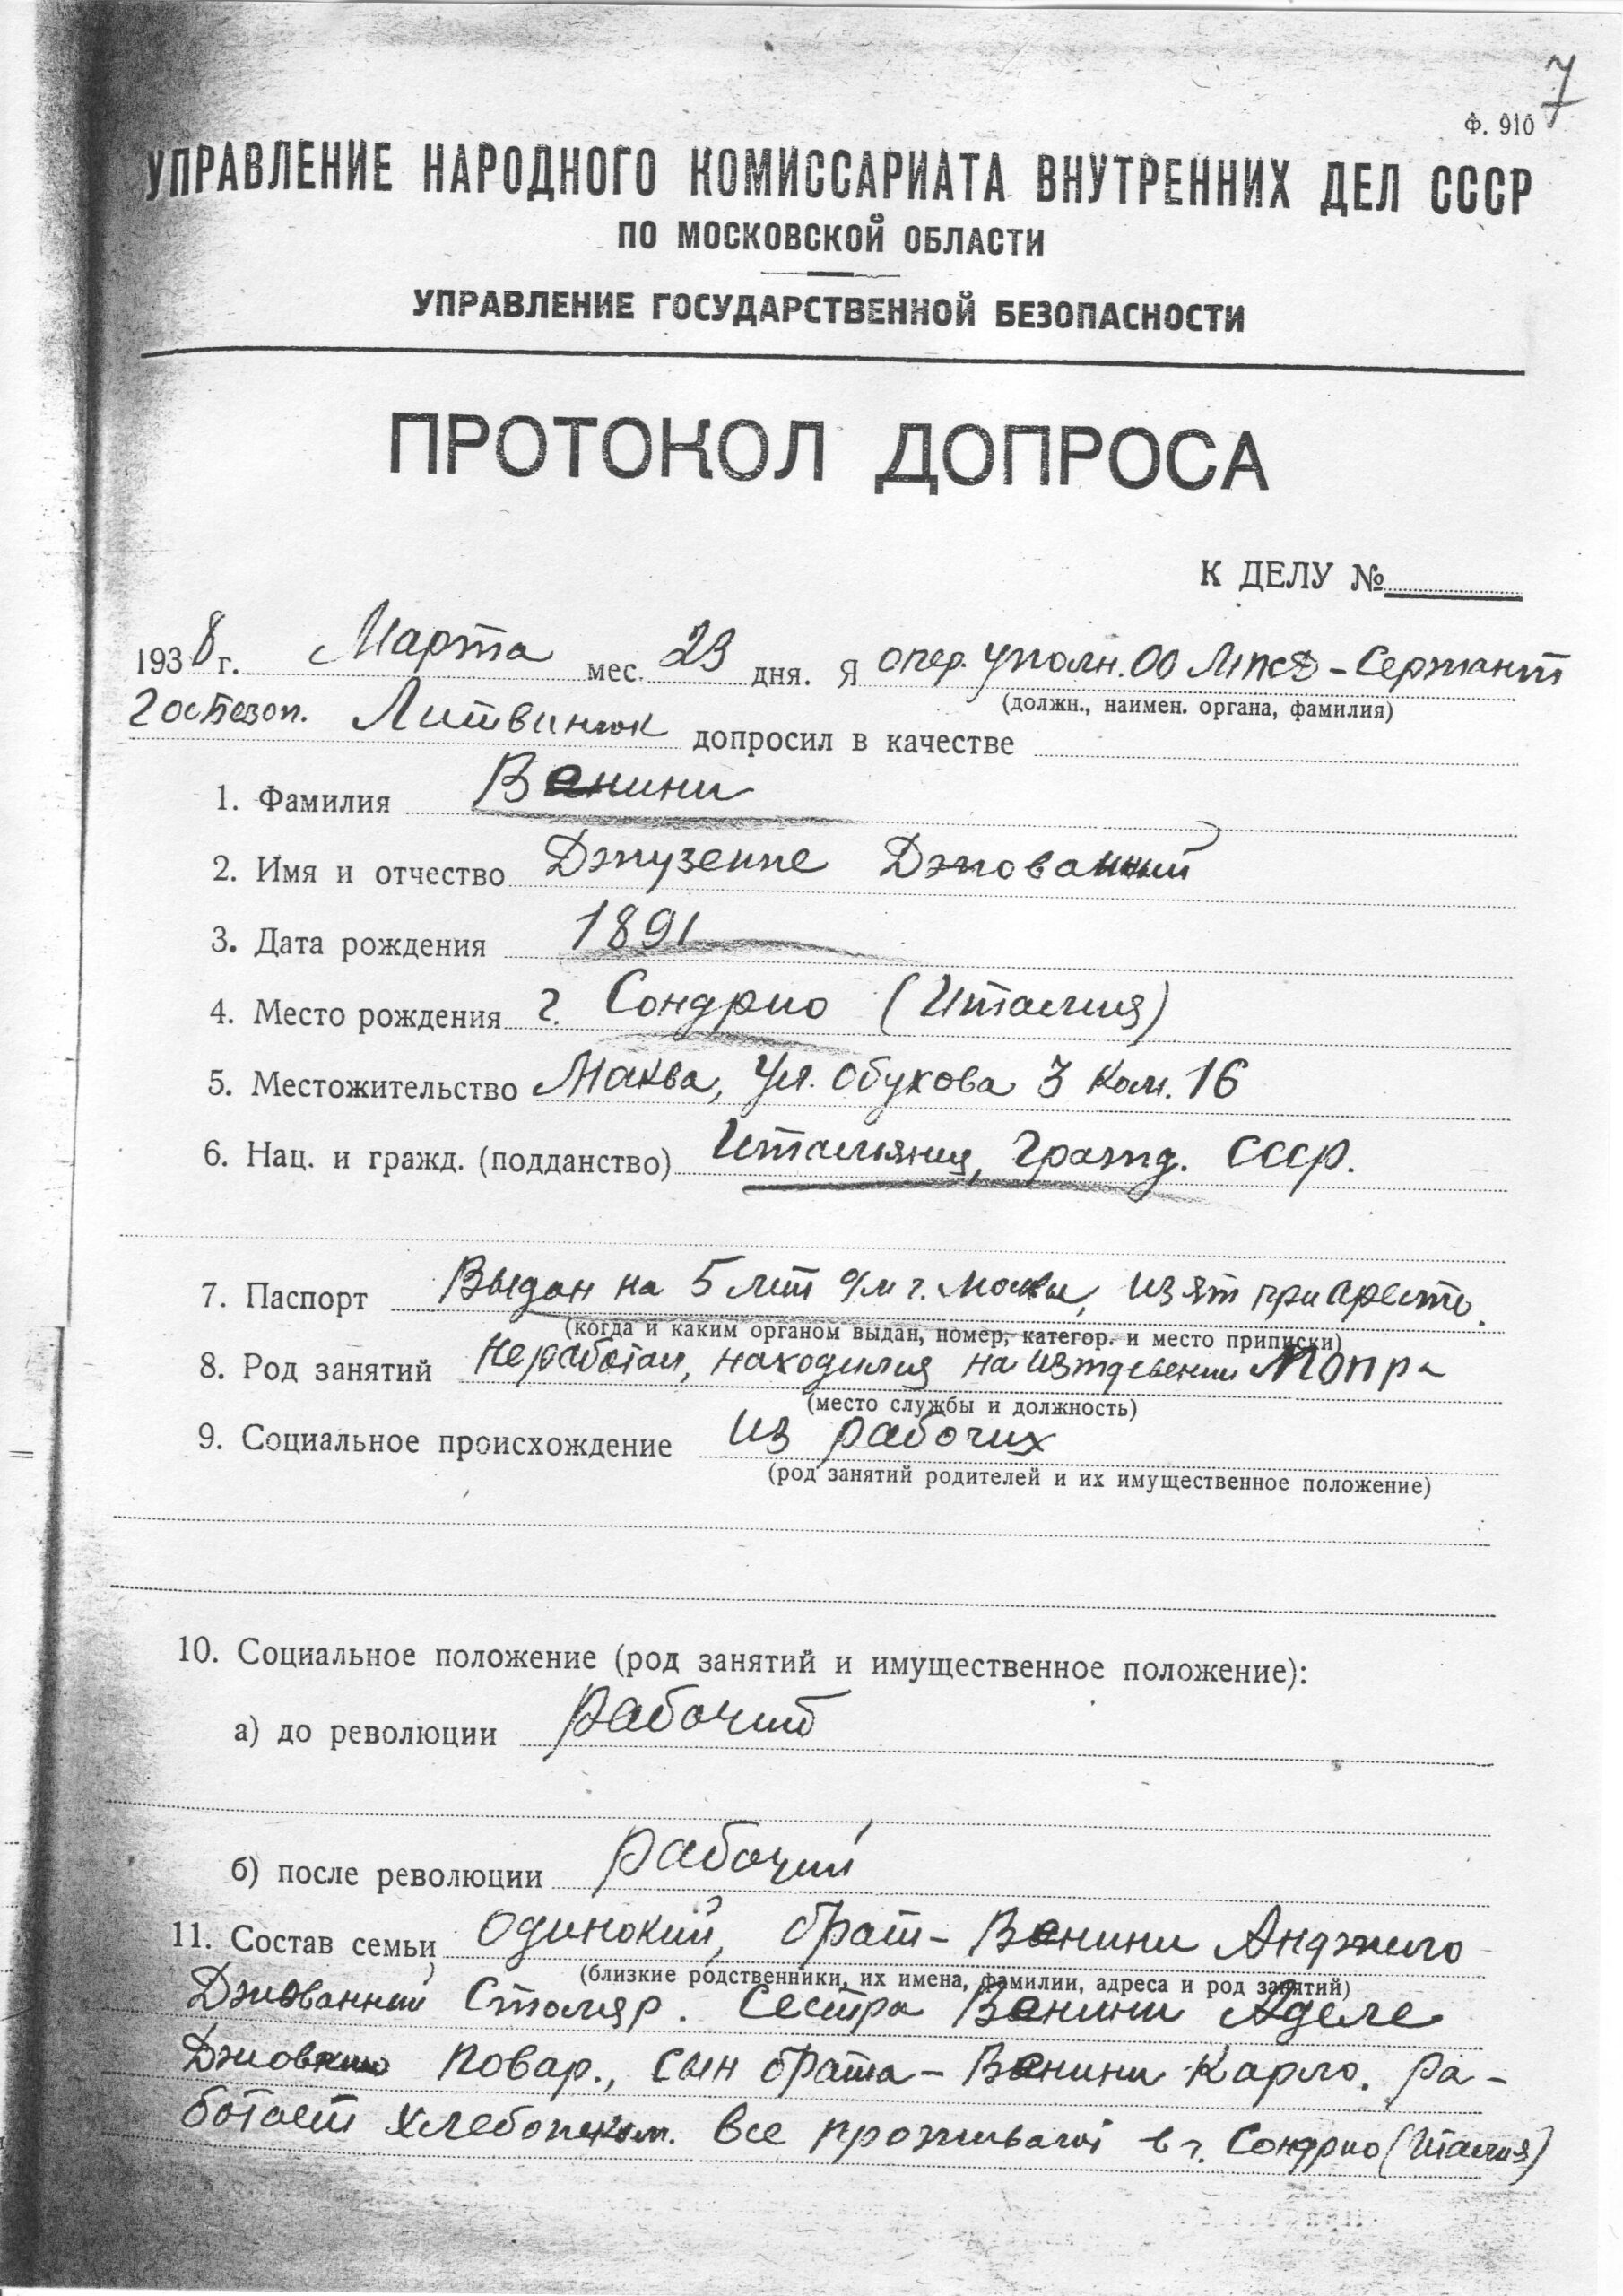 7
Ф. 910
УПРАВЛЕНИЕ НАРОДНОГО КОМИССАРИАТА ВНУТРЕННИХ ДЕЛ СССР
ПО МОСКОВСКОЙ ОБЛАСТИ
УПРАВЛЕНИЕ ГОСУДАРСТВЕННОЙ БЕЗОПАСНОСТИ
ПРОТОКОЛ ДОПРОСА
К ДЕЛУ №
1938 г. Марта мес. 23 дня. Я опер. уполн. ОО - Сержант
(должн., наимен. органа, фамилия)
Госбезоп. Литвинюк допросил в качестве
1. Фамилия Ванини
2. Имя и отчество Джузеппе Джованный
3. Дата рождения 1891
4. Место рождения г. Сондрио (Италия)
5. Местожительство Москва, ул. Обухова 3 ком. 16
6. Нац. и гражд. (подданство) Итальянец, гражд. СССР.
7. Паспорт Выдан на 5 лет о/м г. Москвы, изят при аресте.
(когда и каким органом выдан, номер, категор. и место приписки)
8. Род занятий Не работал, находился на иждевении Мопра
(место службы и должность)
9. Социальное происхождение из рабочих
(род занятий родителей и их имущественное положение)
10. Социальное положение (род занятий и имущественное положение):
а) до революции рабочий
б) после революции рабочий
11. Состав семьи одинокий, брат - Ванини Анджило
(близкие родственники, их имена, фамилии, адреса и род занятий)
Джованний Столяр. Сестра Ванини Аделе
повар., сын брата - Ванини Карло. ра-
ботает хлебопеком. все проживают в г. Сондрио (Италия)